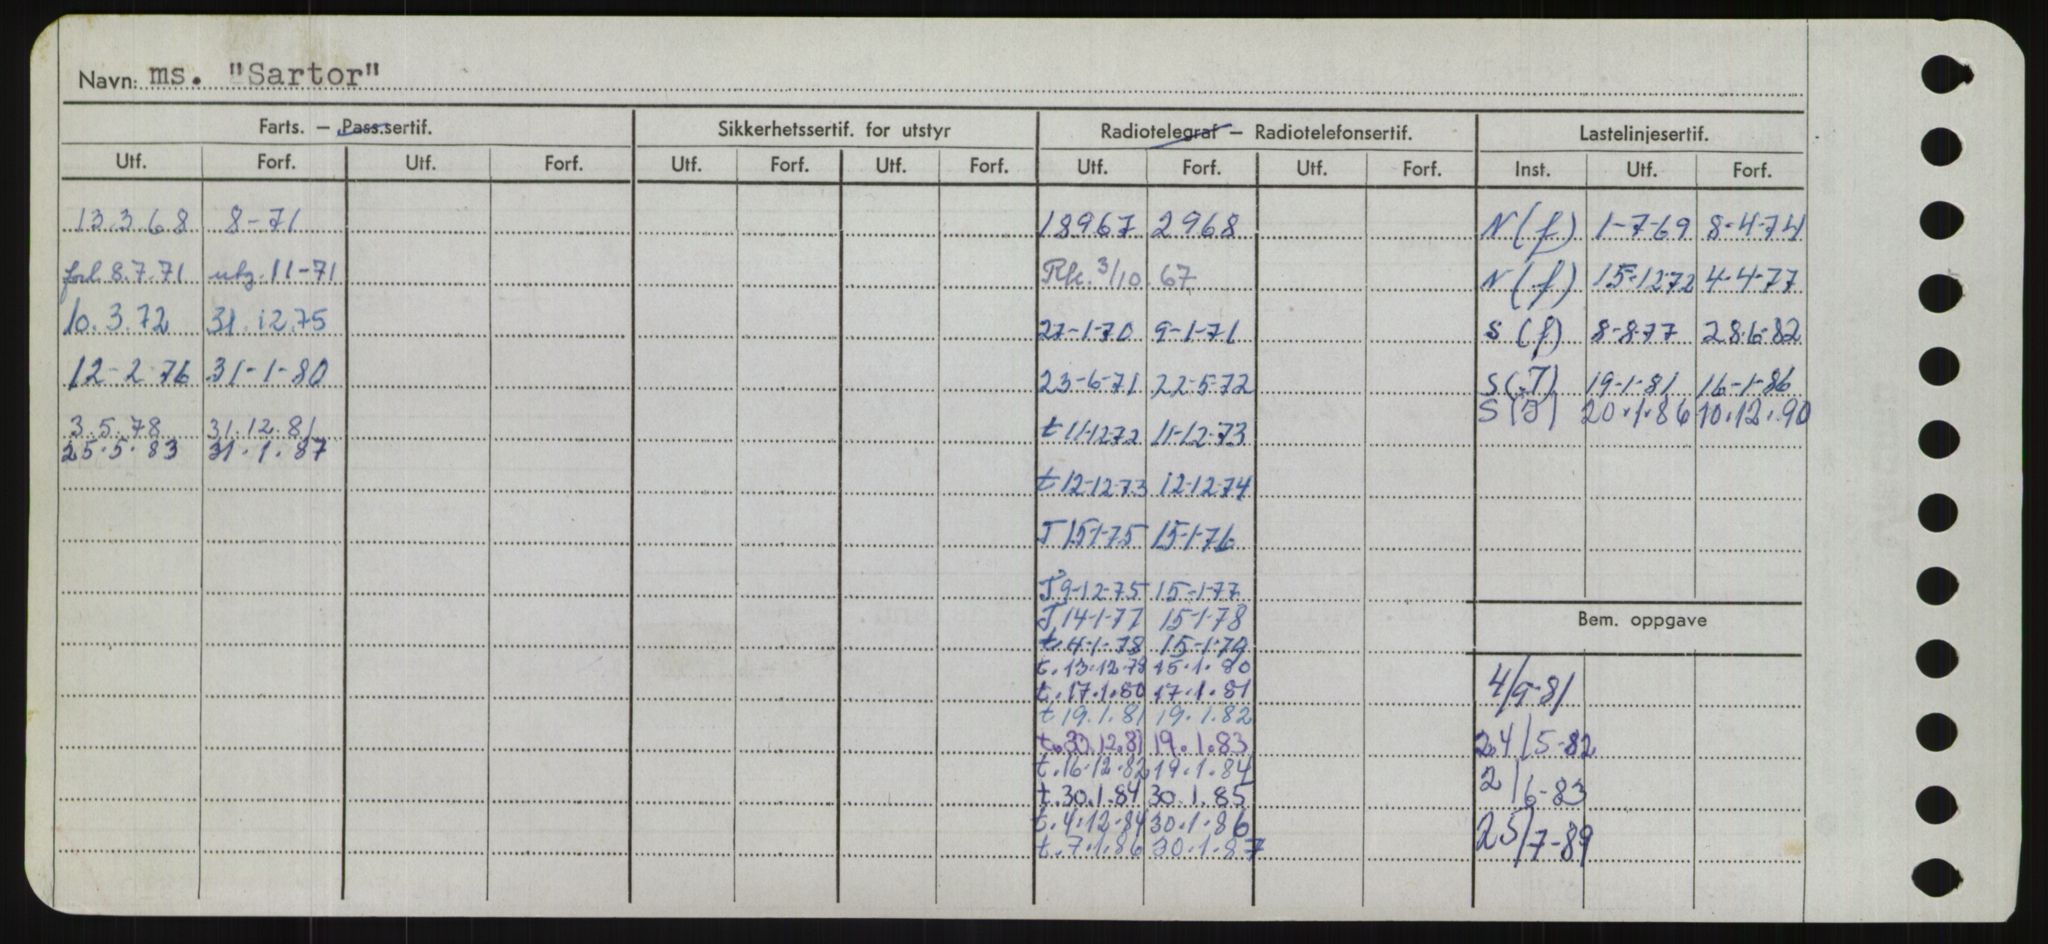 Navn: ms. "Sartor"
Farts. – Pass.sertif. Sikkerhetssertif. for utstyr Radiotelegraf – Radiotelefonsertif. Lastelinjesertif.
Utf. Forf. Utf. Forf. Utf. Forf. Utf. Forf. Utf. Forf. Utf. Forf. Inst. Utf. Forf.
13.3.68 8-71 18967 2968 N(f) 1-7-69 8-4-74
forl. 8.7.71 utg. 11-71 3/10.67 N(f) 15-1272 4-4-77
10.3.72 31.12.75 27-1-70 9-1-71 S(f) 8-8-77 28.6-82
12-2-76 31-1-80 23-6-71 22-5-72 S(T) 19-1-81 16-1-86
3.5.78 31.12.81 t 11-1272 11-12-73 S(J) 20.1.86 10.12.90
25.5.83 31.1.87
t 12-12-73 12-12-74
T 15-1-75 15-1-76
T 9-12-75 15-1-77
T 14-1-77 15-1-78 Bem. oppgave
t 4-1-78 15-1-79
t. 13.12.78 15.1.80
t. 17.1.80 17.1.81 4/9-81
t 19.1.81 19.1.82
t. 30.12.81 19.1.83 24/5-82
t. 16.12.82 19.1.84
t. 30.1.84 30.1.85 2/6-83
t. 4.12.84 30.1.86
t. 7.1.86 30.1.87 25/7-89